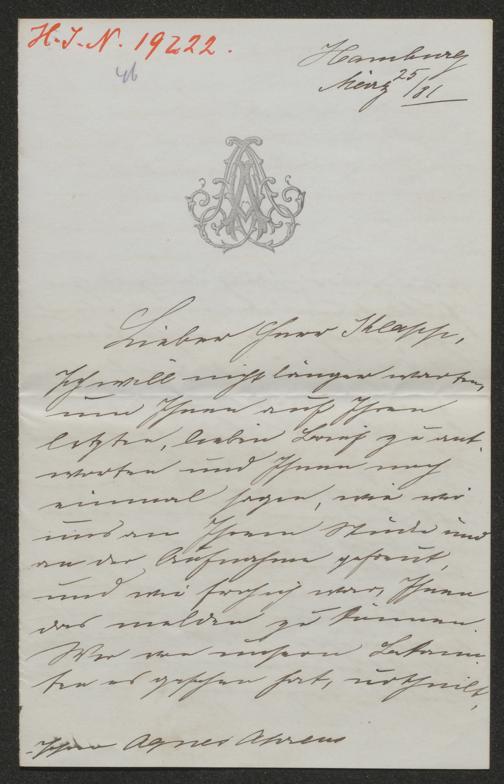 H.I.N. 19222.
46
Hamburg
März 25/81
Lieber Herr Klapp,
Ich will nicht länger warten,
um Ihnen auf Ihren
letzten, lieben Brief zu ant-
worten und Ihnen noch
einmal sagen, wie wir
uns an Ihrem Stücke und
an der Aufnahme gefreut,
und wie froh ich war, Ihnen
das melden zu können.
Wer von unsern Bekann-
ten es gesehen hat, urtheilt,
Ihre Agnes Ahrens